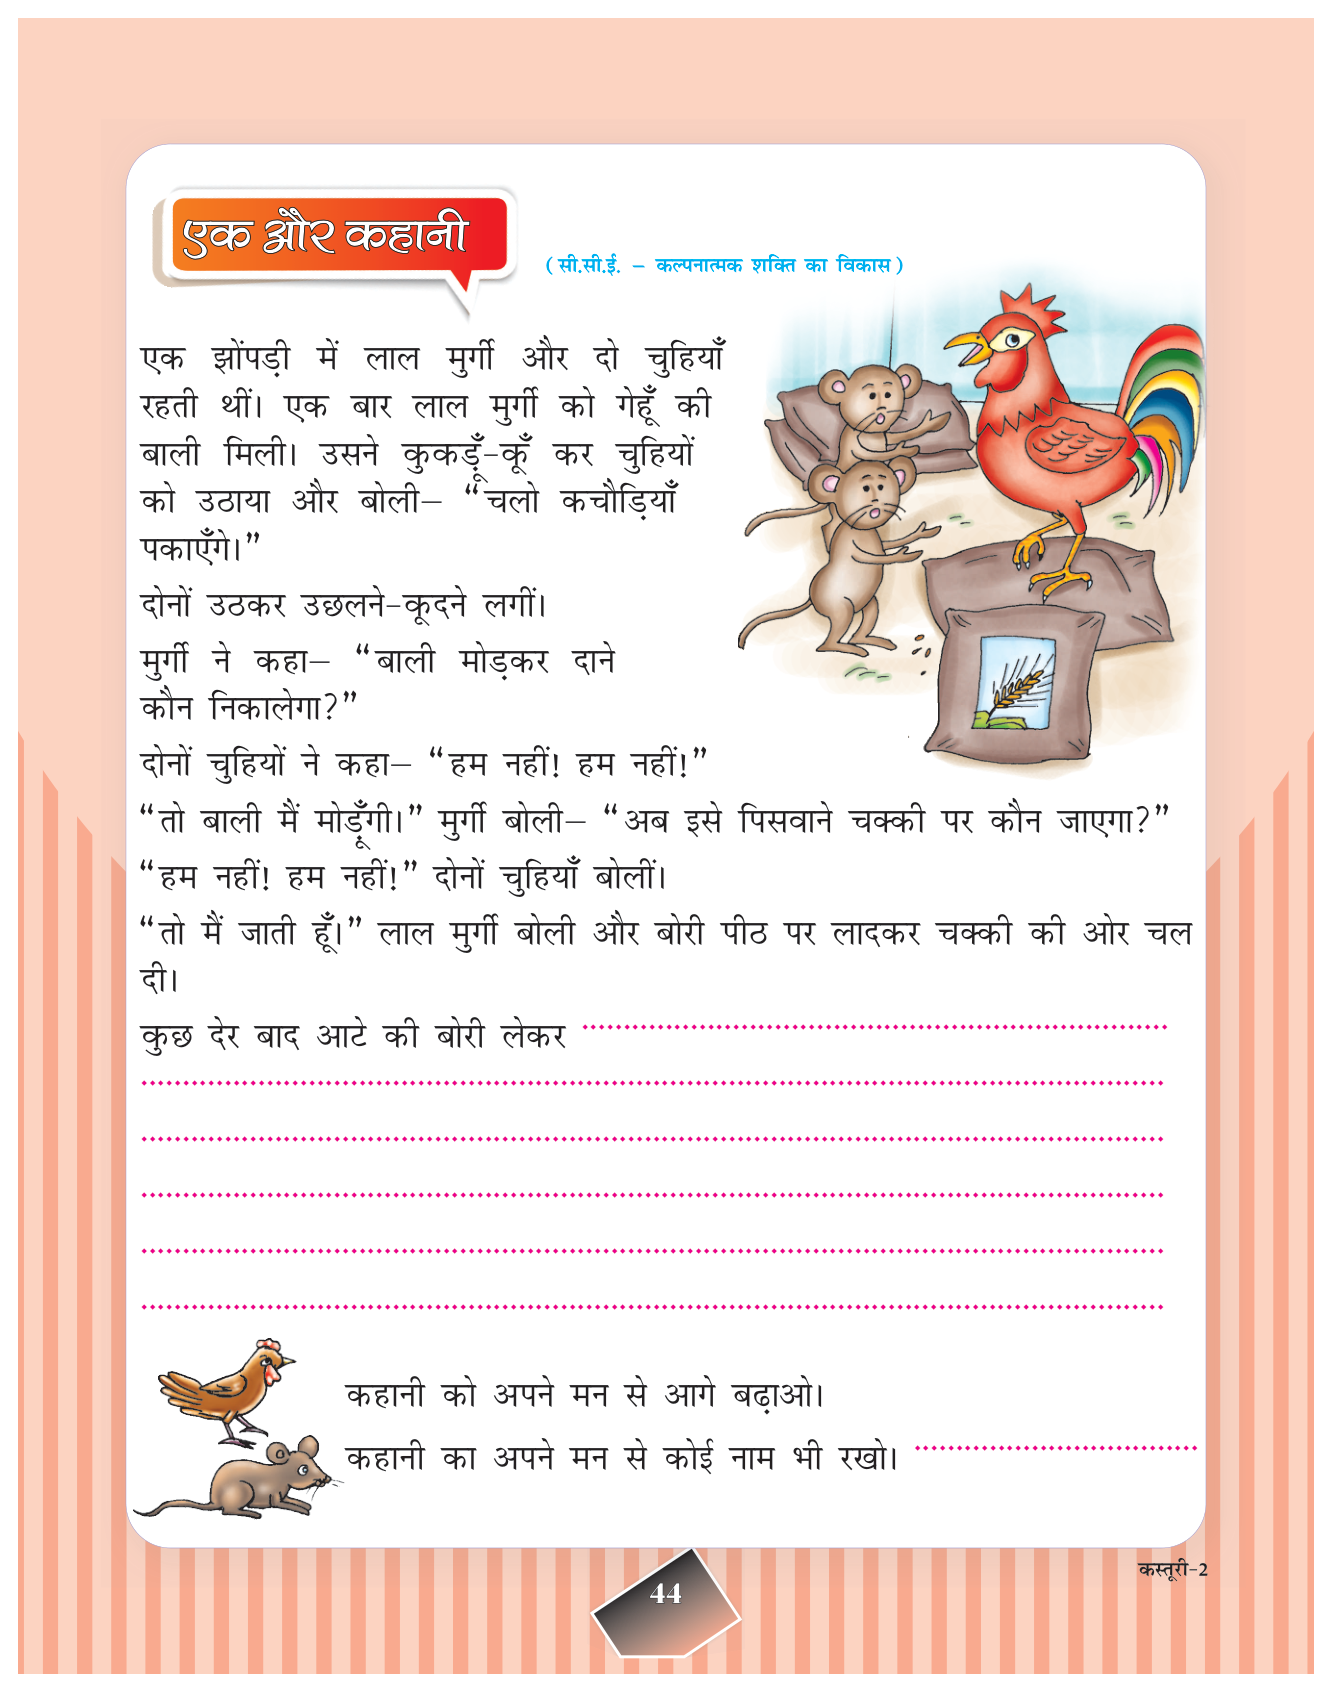 एक और कहानी
(सी.सी.ई. – कल्पनात्मक शक्ति का विकास)
एक झोंपड़ी में लाल मुर्गी और दो चुहियाँ
रहती थीं। एक बार लाल मुर्गी को गेहूँ की
बाली मिली। उसने कुकड़ूँ-कूँ कर चुहियों
को उठाया और बोली– “चलो कचौड़ियाँ
पकाएँगे।”
दोनों उठकर उछलने-कूदने लगीं।
मुर्गी ने कहा– “बाली मोड़कर दाने
कौन निकालेगा?”
दोनों चुहियों ने कहा– “हम नहीं! हम नहीं!”
“तो बाली मैं मोड़ूँगी।” मुर्गी बोली– “अब इसे पिसवाने चक्की पर कौन जाएगा?”
“हम नहीं! हम नहीं!” दोनों चुहियाँ बोलीं।
“तो मैं जाती हूँ।” लाल मुर्गी बोली और बोरी पीठ पर लादकर चक्की की ओर चल
दी।
कुछ देर बाद आटे की बोरी लेकर
कहानी को अपने मन से आगे बढ़ाओ।
कहानी का अपने मन से कोई नाम भी रखो।
44
कस्तूरी-2